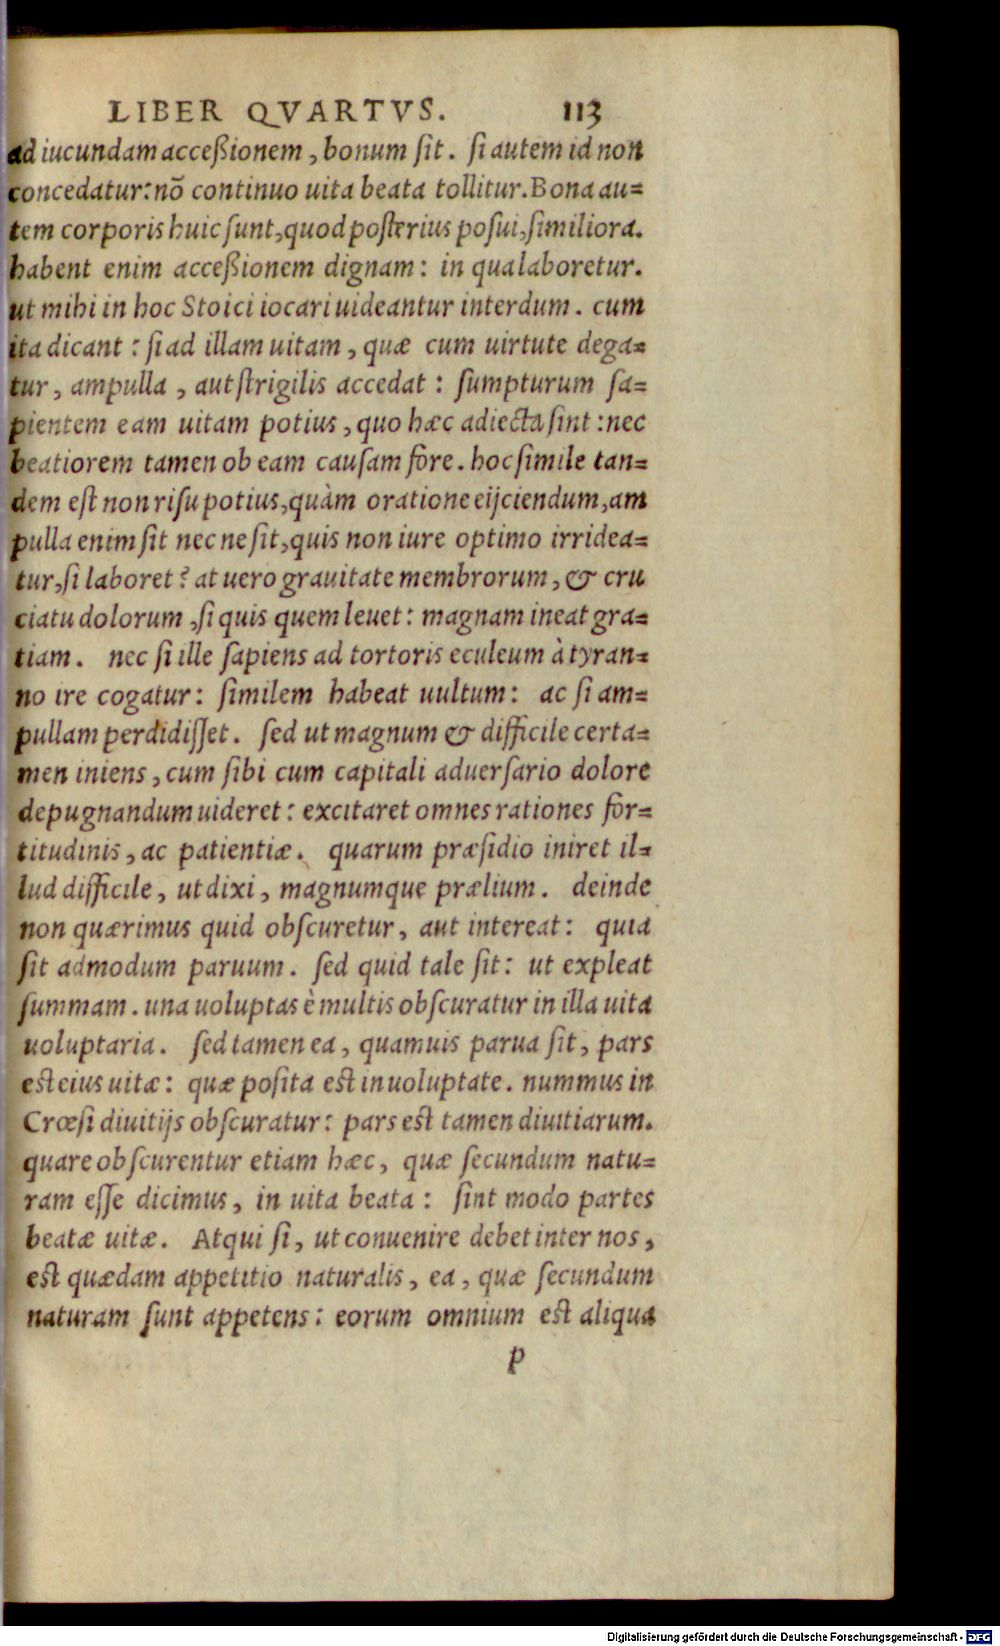 LIBER QVARTVS. 113
ad iucundam acceßionem, bonum ſit. ſi autem id non
concedatur: nõ continuo uita beata tollitur. Bona au=
tem corporis huic ſunt, quod poſterius poſui, ſimiliora.
habent enim acceßionem dignam: in qua laboretur.
ut mihi in hoc Stoici iocari uideantur interdum. cum
ita dicant: ſi ad illam uitam, quæ cum uirtute dega=
tur, ampulla, aut ſtrigilis accedat: ſumpturum ſa=
pientem eam uitam potius, quo hæc adiecta ſint: nec
beatiorem tamen ob eam cauſam fore. hoc ſimile tan=
dem eſt non riſu potius, quàm oratione eijciendum, am
pulla enim ſit nec ne ſit, quis non iure optimo irridea=
tur, ſi laboret? at uero grauitate membrorum, & cru
ciatu dolorum, ſi quis quem leuet: magnam ineat gra=
tiam. nec ſi ille ſapiens ad tortoris eculeum à tyran=
no ire cogatur: ſimilem habeat uultum: ac ſi am=
pullam perdidiſſet. ſed ut magnum & difficile certa=
men iniens, cum ſibi cum capitali aduerſario dolore
depugnandum uideret: excitaret omnes rationes for=
titudinis, ac patientiæ. quarum præſidio iniret il=
lud difficile, ut dixi, magnumque prælium. deinde
non quærimus quid obſcuretur, aut intereat: quia
ſit admodum paruum. ſed quid tale ſit: ut expleat
ſummam. una uoluptas è multis obſcuratur in illa uita
uoluptaria. ſed tamen ea, quamuis parua ſit, pars
eſt eius uitæ: quæ poſita eſt in uoluptate. nummus in
Crœſi diuitijs obſcuratur: pars eſt tamen diuitiarum.
quare obſcurentur etiam hæc, quæ ſecundum natu=
ram eſſe dicimus, in uita beata: ſint modo partes
beatæ uitæ. Atqui ſi, ut conuenire debet inter nos,
eſt quædam appetitio naturalis, ea, quæ ſecundum
naturam ſunt appetens: eorum omnium eſt aliqua
p
Digitalisierung gefördert durch die Deutsche Forschungsgemeinschaft - DFG